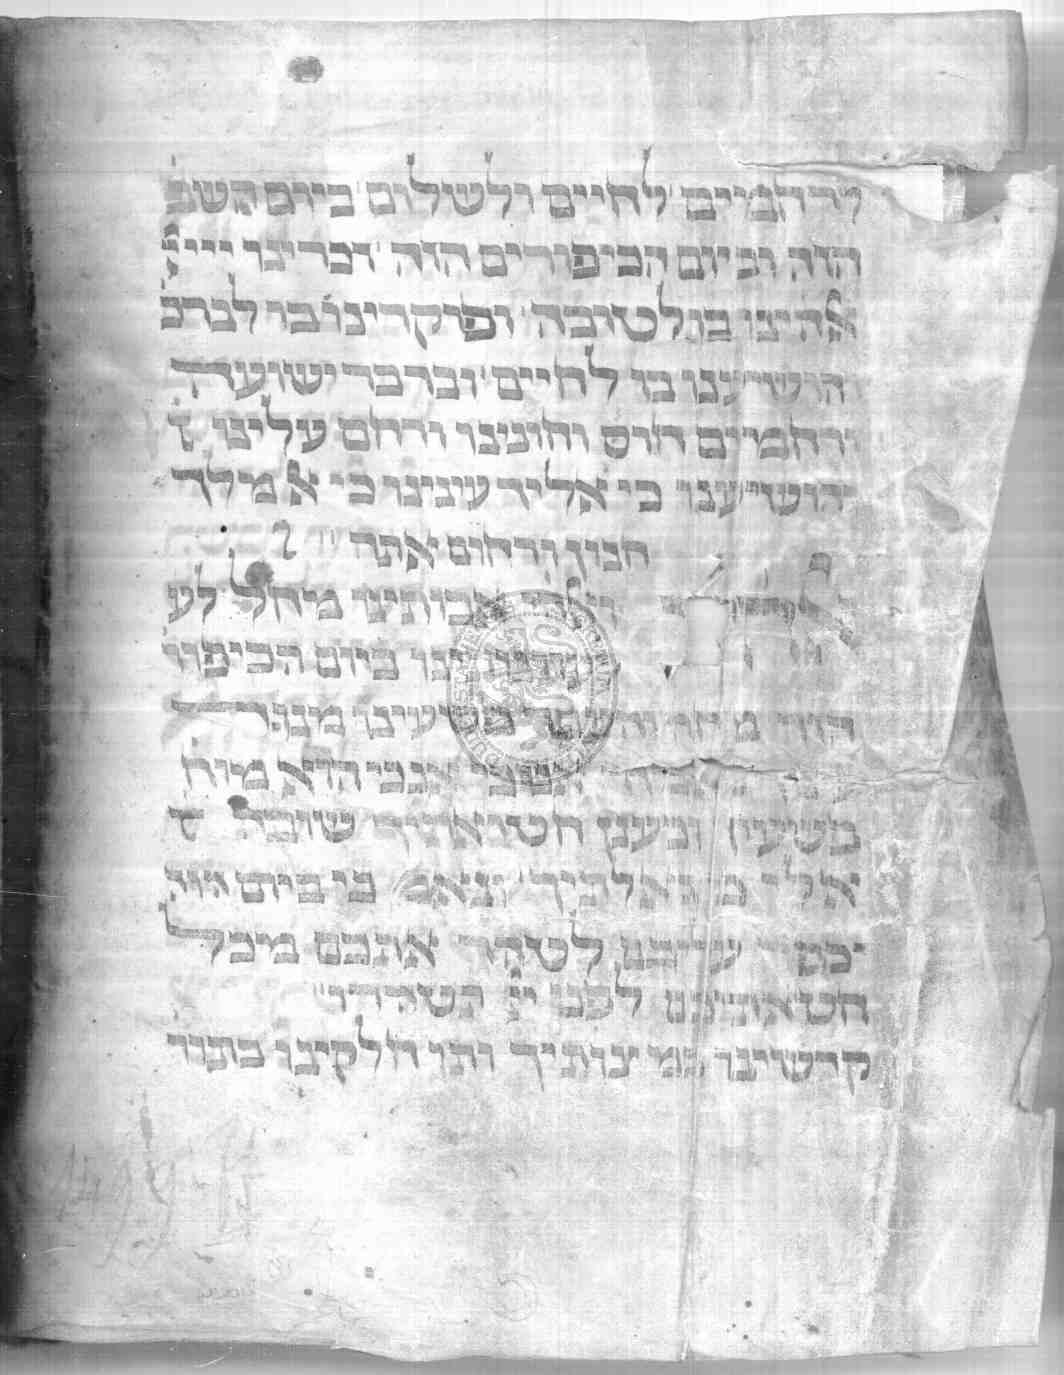 ולרחמים לחיים ולשלום ביום השב
הזה וביום הכיפורים הזה זכרינו ייי
אהינו בו לטובה ופוקדינו בו לברכ
והושיענו בו לחיים ובדבר ישועה
ורחמים חוס וחונינו ורחם עלינו
והושיענו כי אליך עינינו כי א מלך
חנון ורחום אתה
אבותינו מחל לע
ביום הכיפור
הזה מחה והעבר פשיעינו מנגד
אנכי אנכי הוא מוחה
פשעיך וכענן חטאותיך שובה
אלי כי גאלתיך כי ביום הזה
יכפר עליכם לטהר אתכם מכל
חטאותיכם לפני ייי תטהרו
קדשינו במצותיך ותן חלקינו בתור